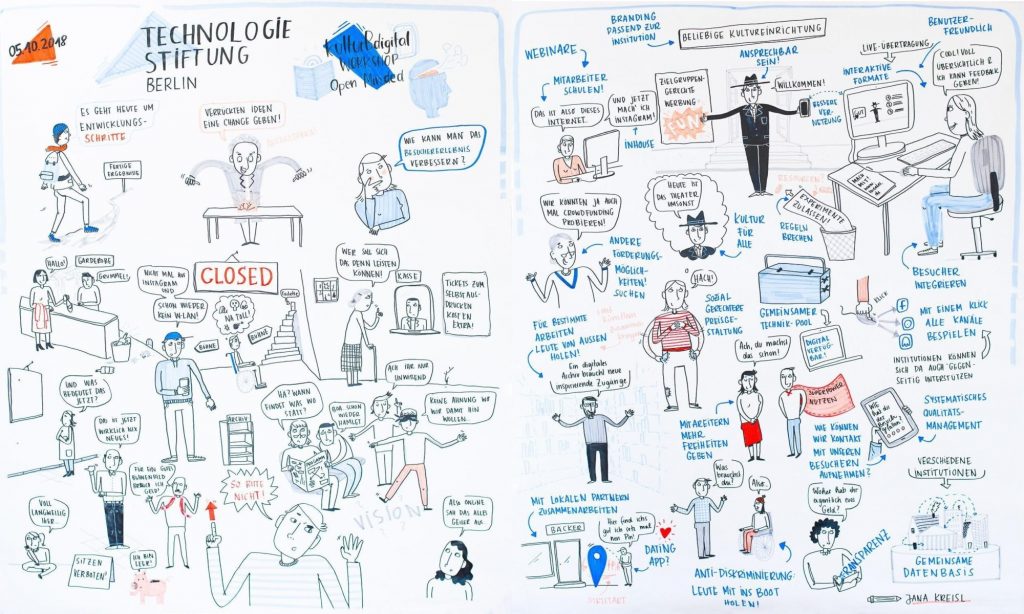 05.10.2018
TECHNOLOGIE
STIFTUNG
BERLIN
kulturBdigital
WORKSHOP
Open Minded
ES GEHT HEUTE UM
ENTWICKLUNGS-
SCHRITTE
FERTIGE
ERGEBNISSE
VERRÜCKTEN IDEEN
EINE CHANCE GEBEN!
WIE KANN MAN DAS
BESUCHERERLEBNIS
VERBESSERN?
HALLO!
GARDEROBE
GRUMMEL!
NICHT MAL AUF
INSTAGRAM
UND
SCHON WIEDER
KEIN W-LAN!
CLOSED
NA TOLL!
BÜHNE
BÜHNE
WER SOLL SICH
DAS DENN LEISTEN
KÖNNEN!
KASSE
TICKETS ZUM
SELBSTAUS-
DRUCKEN
KOSTEN
EXTRA!
UND WAS
BEDEUTET DAS
JETZT?
DAS IST JETZT
WIRKLICH NIX
NEUES!
FÜR EIN GUTES
BÜHNENBILD
BRAUCH ICH
GELD!
ARCHIV
HÄ? WANN
FINDET WAS WO
STATT?
BOA SCHON
WIEDER
HAMLET
ACH IHR NUR
UNWISSEND
KEINE AHNUNG WO
WIR DAMIT HIN
WOLLEN.
SO BITTE
NICHT!
VISION
?
VOLL
LANGWEILIG
HIER...
SITZEN
VERBOTEN!
ICH BIN
LEER!
ALSO ONLINE
SAH DAS ALLES
GEILER AUS
BRANDING
PASSEND ZUR
INSTITUTION
BELIEBIGE KULTUREINRICHTUNG
WEBINARE
MITARBEITER
SCHULEN!
DAS IST ALSO DIESES
INTERNET.
UND JETZT
MACH' ICH
INSTAGRAM!
INHOUSE
ZIELGRUPPEN-
GERECHTE
WERBUNG
FUN
ANSPRECHBAR
SEIN!
WILLKOMMEN!
BESSERE VER-
NETZUNG
LIVE-ÜBERTRAGUNG
INTERAKTIVE
FORMATE
BENUTZER-
FREUNDLICH
COOL! VOLL
ÜBERSICHTLICH &
ICH KANN FEEDBACK
GEBEN!
MACH
MIT!
WIR KÖNNTEN JA AUCH
MAL CROWDFUNDING
PROBIEREN!
ANDERE
FÖRDERUNGS-
MÖGLICH-
KEITEN!
SUCHEN
HEUTE IST
DAS THEATER
UMSONST
KULTUR
FÜR
ALLE
RESSOURCEN?
EXPERIMENTE
ZULASSEN!
REGELN
BRECHEN
BESUCHER
INTEGRIEREN
HACH!
SOZIAL
GERECHTERE
PREISGE-
STALTUNG
GEMEINSAMER
TECHNIK-POOL
DIGITAL
VERFÜG-
BAR!
KLICK
MIT EINEM KLICK
ALLE KANÄLE
BESPIELEN
INSTITUTIONEN KÖNNEN
SICH DA AUCH GEGEN-
SEITIG UNTERSTÜTZEN
FÜR BESTIMMTE
ARBEITEN
LEUTE VON AUSSEN
HOLEN!
Ein digitales
Archiv braucht neue
inspirierende Zugänge
Ach, du machst
das schon!
MITARBEITERN
MEHR
FREIHEITEN
GEBEN
SUPERPOWER
NUTZEN
WIE KÖNNEN
WIR KONTAKT
MIT UNSEREN
BESUCHERN
AUFNEHMEN?
SYSTEMATISCHES
QUALITÄTS-
MANAGEMENT
VERSCHIEDENE
INSTITUTIONEN
GEMEINSAME
DATENBASIS
MIT LOKALEN PARTNERN
ZUSAMMENARBEITEN
BÄCKER
DATING
APP?
Was
brauchst
du?
Also..
ANTI-DISKRIMINIERUNG:
LEUTE MIT INS BOOT
HOLEN!
Woher hab ihr
eigentlich euer
Geld?
TRANSPARENZ
JANA KREISL